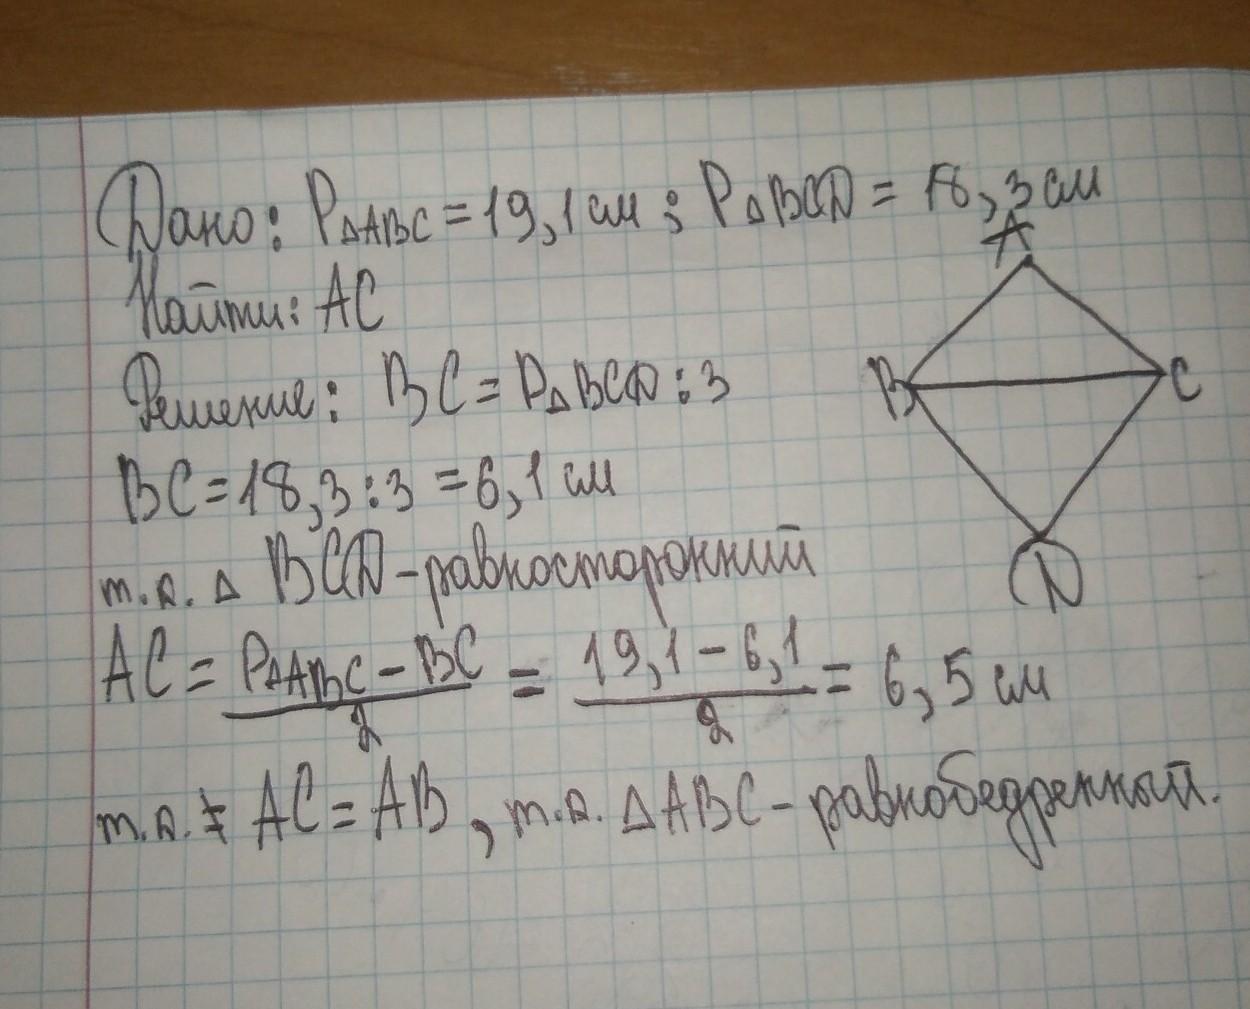 Дано: P△ABC = 19,1 см ; P△BCD = 18,3 см
Найти: AC
Решение: BC = P△BCD : 3
BC = 18,3 : 3 = 6,1 см
т.к. △ BCD - равносторонний
AC = P△ABC - BC / 2 = 19,1 - 6,1 / 2 = 6,5 см
т.к. AC = AB, т.к. △ABC - равнобедренный.
A
B
C
D